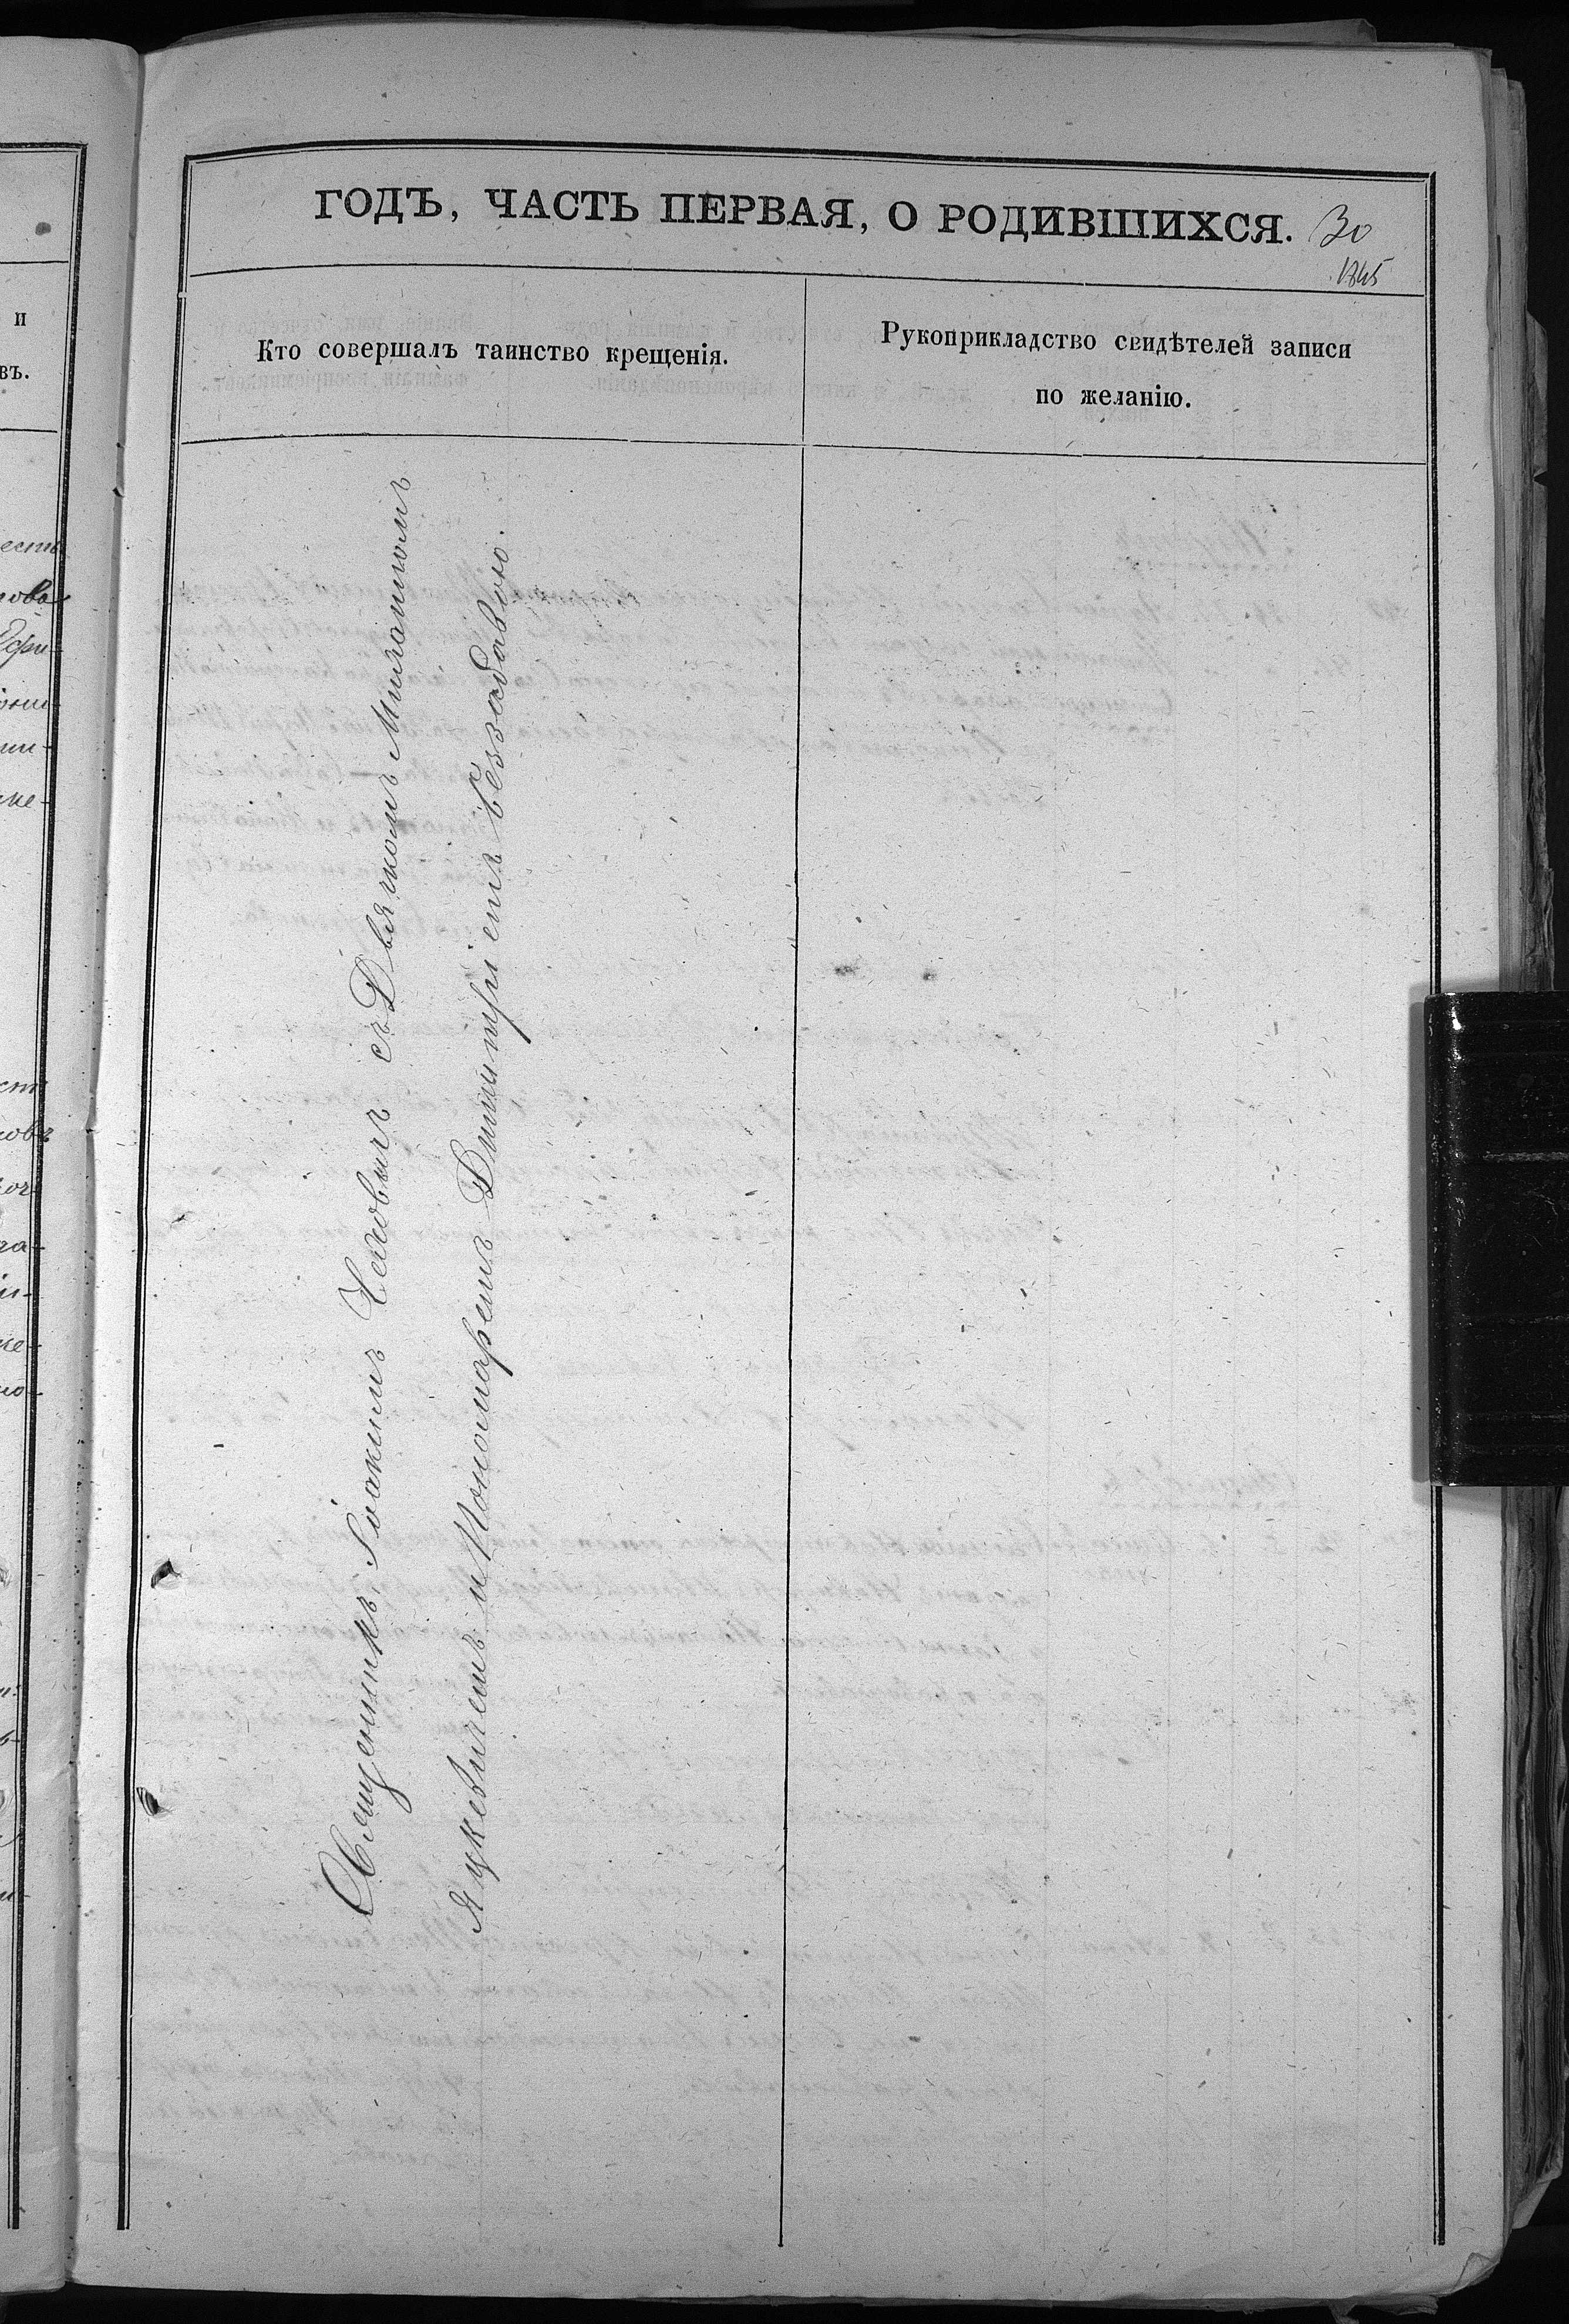 ГОДЪ, ЧАСТЬ ПЕРВАЯ, О РОДИВШИХСЯ.
30
1845
Кто совершалъ таинство крещенія.
Рукоприкладство свидѣтелей записи
по желанію.
Священникъ Іоакимъ Чехович съ Дьячкомъ Михаиломъ
Яцкевичемъ и Пономаремъ Димитріемъ Беззабавою.
и
въ.